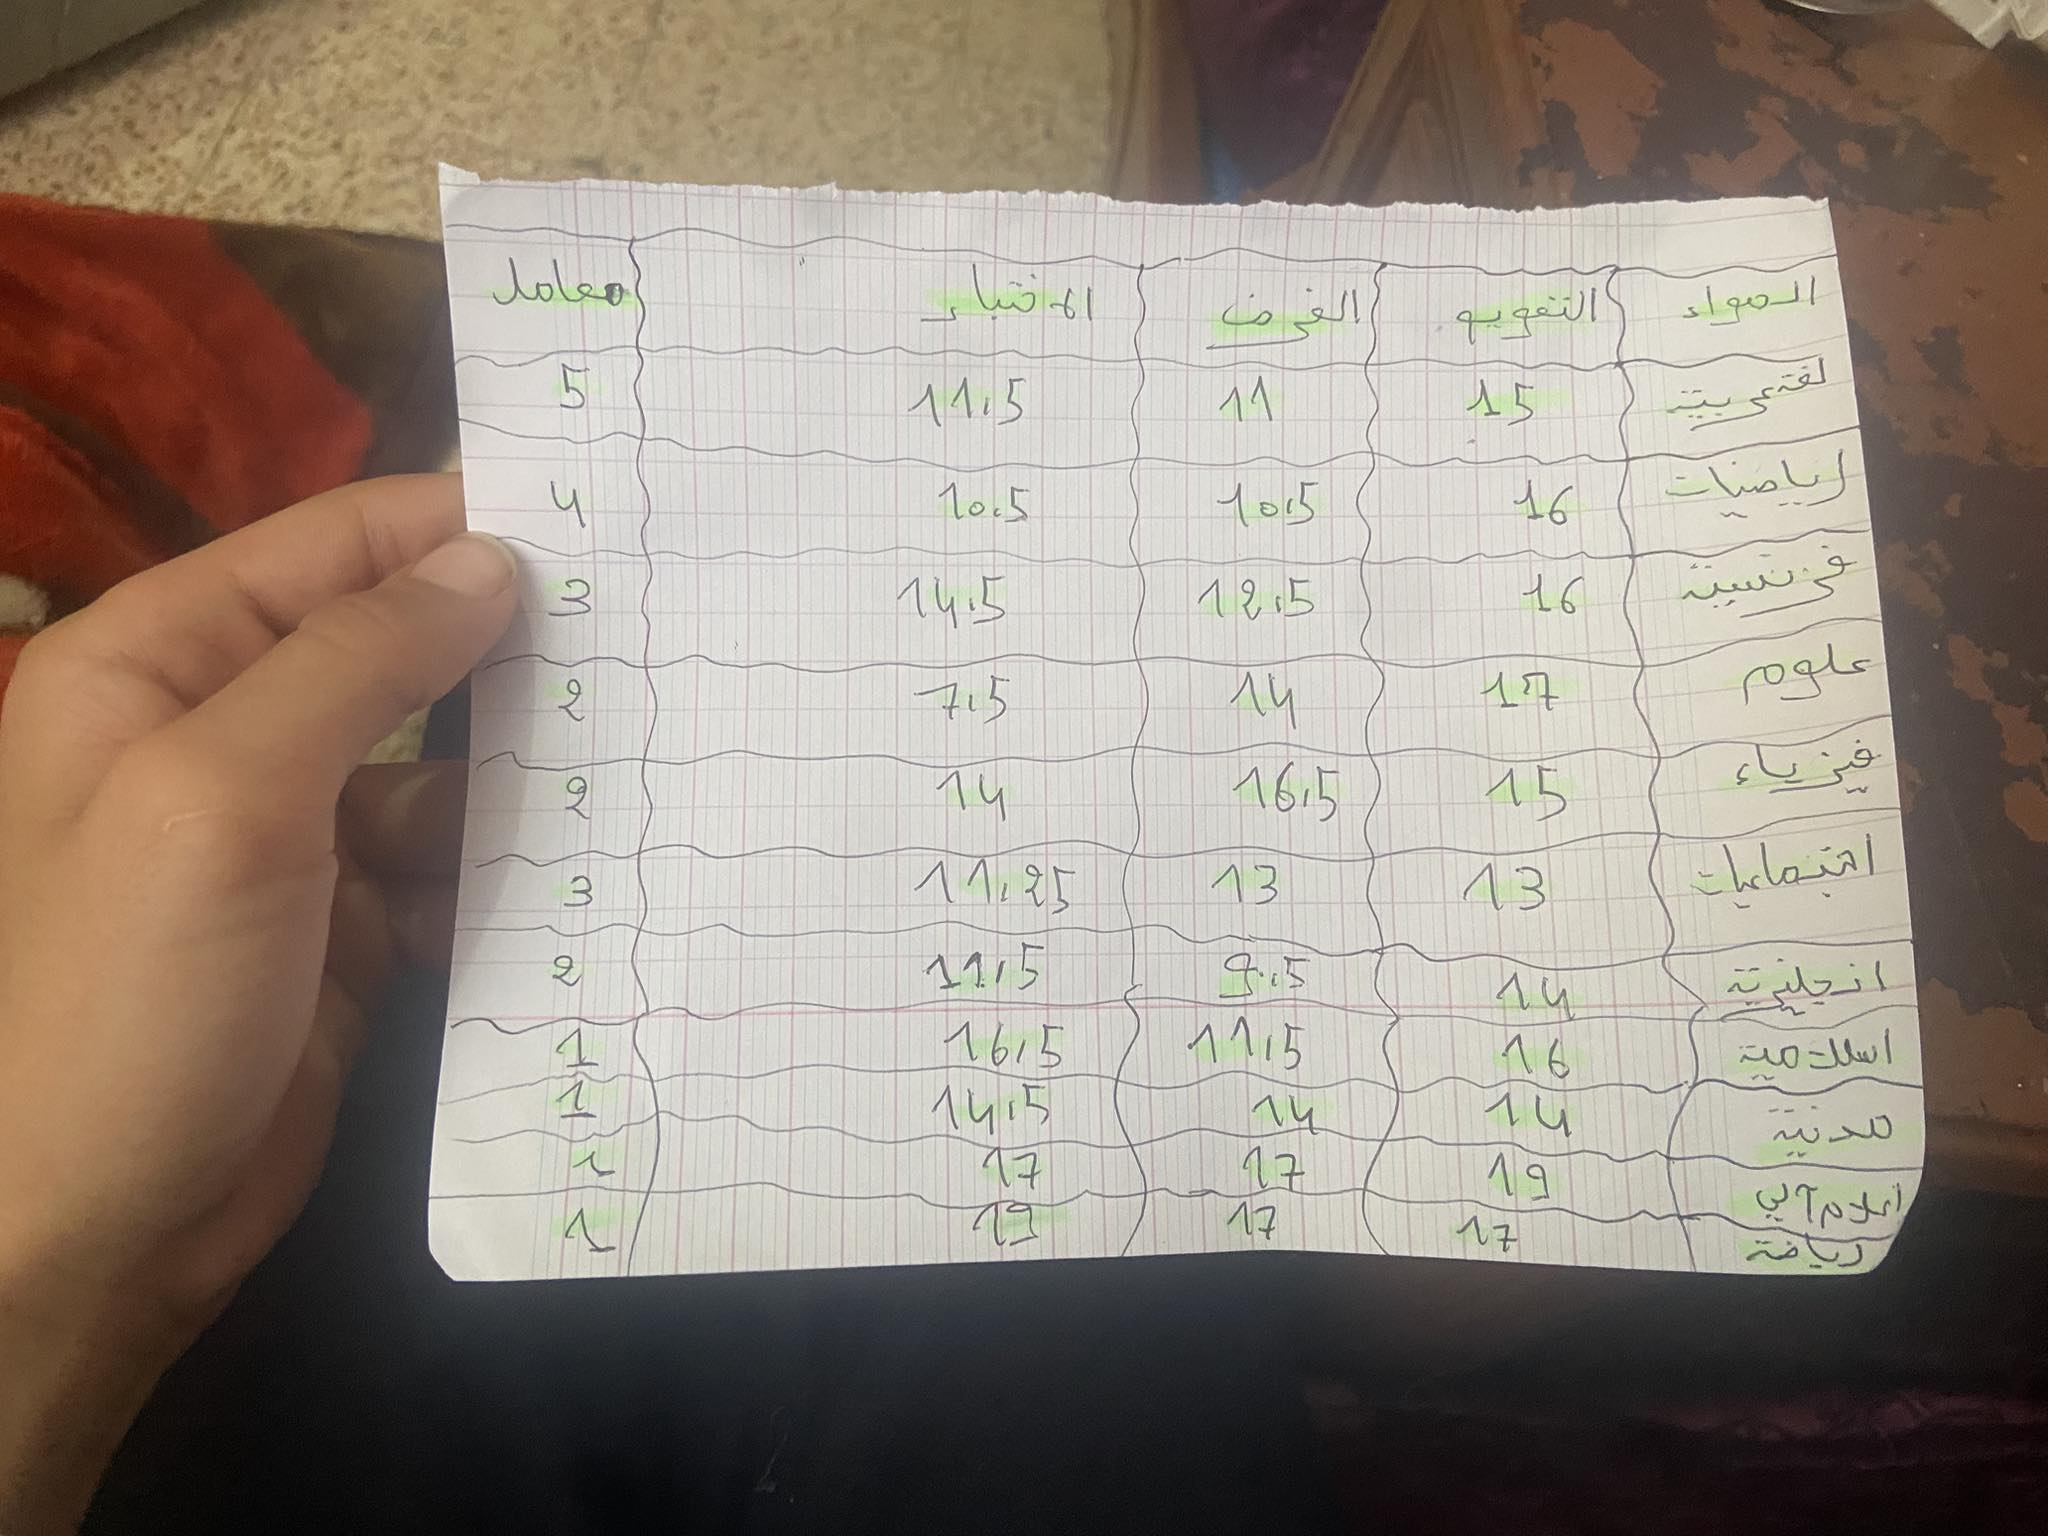 المواد التقويم الفرض الاختبار معامل
لغة عربية 15 11 11.5 5
رياضيات 16 10.5 10.5 4
فرنسية 16 12.5 14.5 3
علوم 17 14 7.5 2
فيزياء 15 16.5 14 2
اجتماعيات 13 13 11.25 3
انجليزية 14 9.5 11.5 2
اسلامية 16 11.5 16.5 1
مدنية 14 14 14.5 1
اعلام آلي 19 17 17 1
رياضة 17 17 19 1